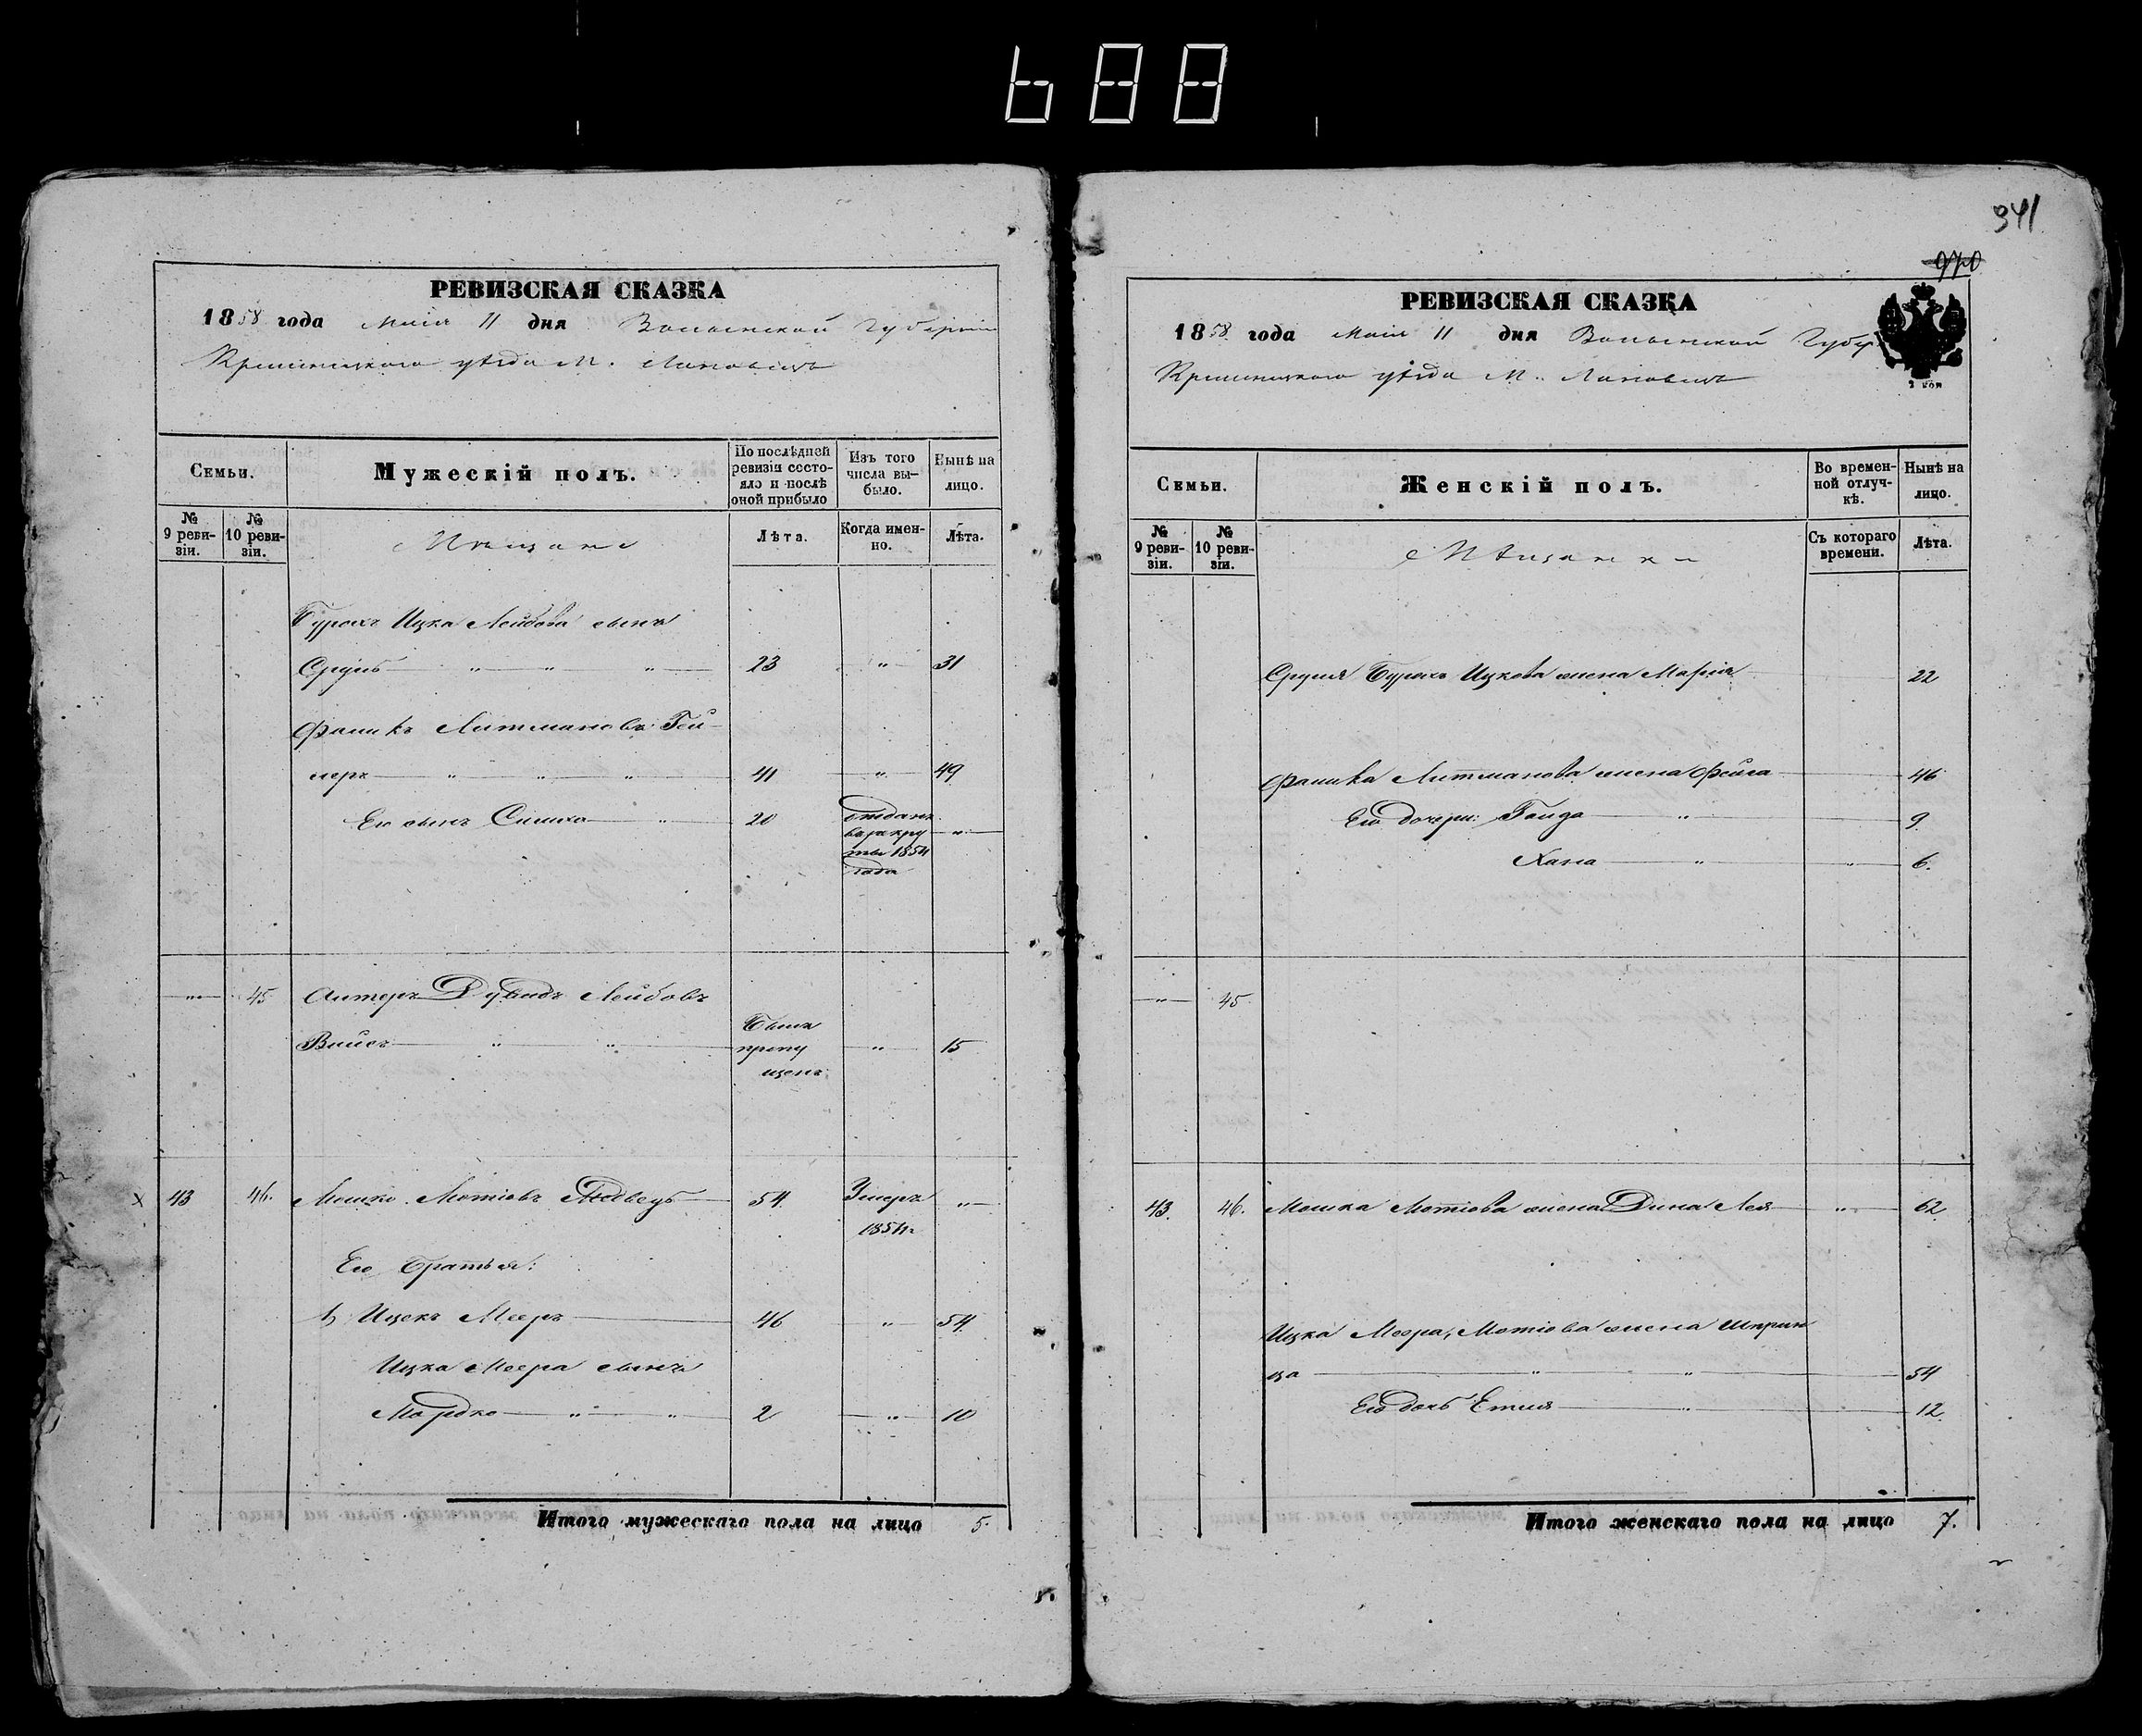 688
РЕВИЗСКАЯ СКАЗКА
1858 года Маія 11 дня Волынской Губерніи
Кременецкаго уѣзда М. Лановецъ
Семьи.
Мужескій полъ.
По послѣдней ревизіи состо-
яло и послѣ оной прибыло
Изъ того числа вы-
было.
Нынѣ на лицо.
№ 9 реви-
зіи.
№ 10 реви-
зіи.
Мѣщане
Лѣта.
Когда имен-
но.
Лѣта.
Бурохъ Ицка Лейбова сынъ
Сруль " " " 23 " 31
Фаликъ Литмановъ
41 " 49
Его сынъ Симха " 20 отданъ
въ рекру
ты 1854
года "
" 45 Алтеръ Дувидъ Лейбовъ
Вайсъ " " Былъ
пропу
щенъ " 15
43 46. Мошко Мотіовъ Медведь 54. Умеръ
1854г "
Его братья:
1, Ицекъ Мееръ 46 " 54.
Ицка Меера сынъ
Мордко " " 2 " 10
Итого мужескаго пола на лицо 5.
341
970
РЕВИЗСКАЯ СКАЗКА
1858 года Маія 11 дня Волынской Губер
Кременецкаго уѣзда М. Лановецъ
Семьи.
Женскій полъ.
Во времен-
ной отлуч-
кѣ.
Нынѣ на лицо.
№ 9 реви-
зіи.
№ 10 реви-
зіи.
Мѣщанки
Съ котораго времени.
Лѣта.
Сруля Бурохъ Ицкова жена Марія 22
Фалика Литманова жена Фейга 46
Его дочери: " 9
Хана " " 6.
" 45
43. 46. Мошка Мотіова жена Дина Лея " 62
Ицка Меера, Мотіова жена Шприн
ца " " 54
Его дочь Етля " 12
Итого женскаго пола на лицо 7.